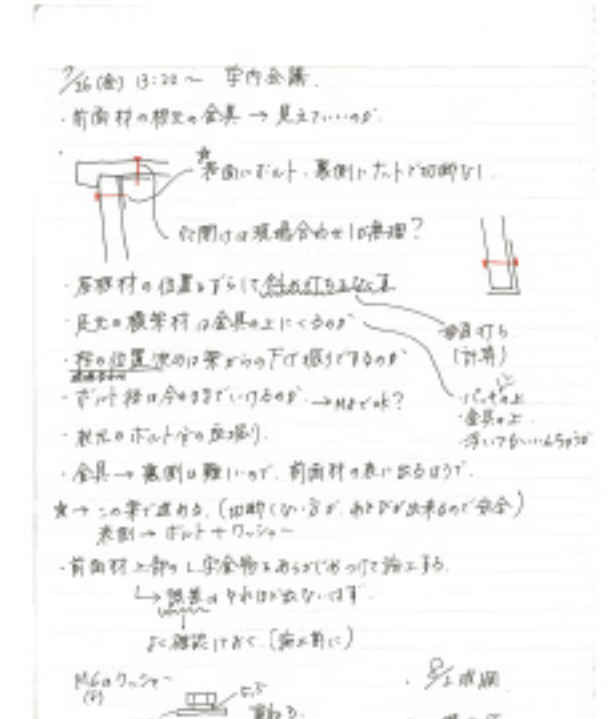 7/26(金) 13:20〜 学内会議.
・前面材の根元の金具 → 見えていいのか.
★表側にボルト、裏側にナットで切断なし.
穴開けは現場合わせは無理？
・屋根材の位置をずらして斜め打ちをなくす
・足元の横架材は金具の上にくるのか
垂直打ち
(計算)
・柱の位置決めは梁からの下げ振りでするのか
・ボルト径は今のままでいけるのか. → M8でok？
・金具の上.
・根元のボルト穴の座堀り.
・金具 → 裏側は難しいので、前面材の表に出るほうで.
★→ この案で進める.(切断しない方が、あそびが出来るので安全)
表側 → ボルト + ワッシャー
・前面材上部のL字金物をあらかじめつけて施工する.
↳ 誤差はそれほど出ないはず.
よく確認しておく.(施工前に)
M6のワッシャー